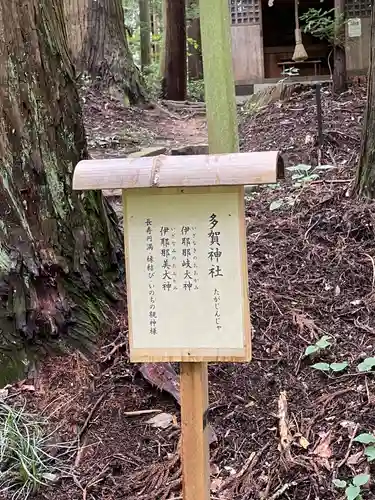 多賀神社 たがじんじゃ
いざなぎのおおかみ
伊耶那岐大神
いざなみのおおかみ
伊耶那美大神
長寿円満 縁結び いのちの親神様